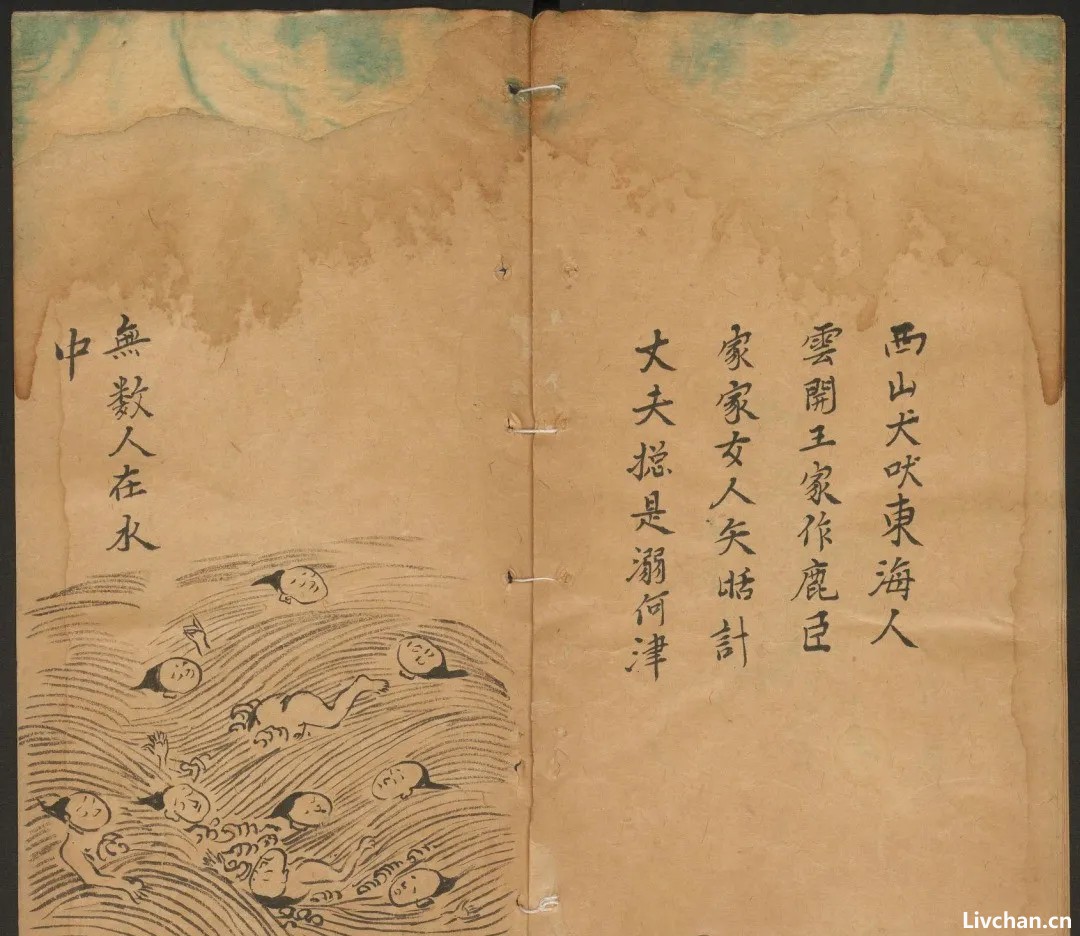 西山犬吠東海人
雲開王家作鹿臣
家家女人矢晤計
丈夫摠是溺何津
無数人在水
中
Livchan.cn